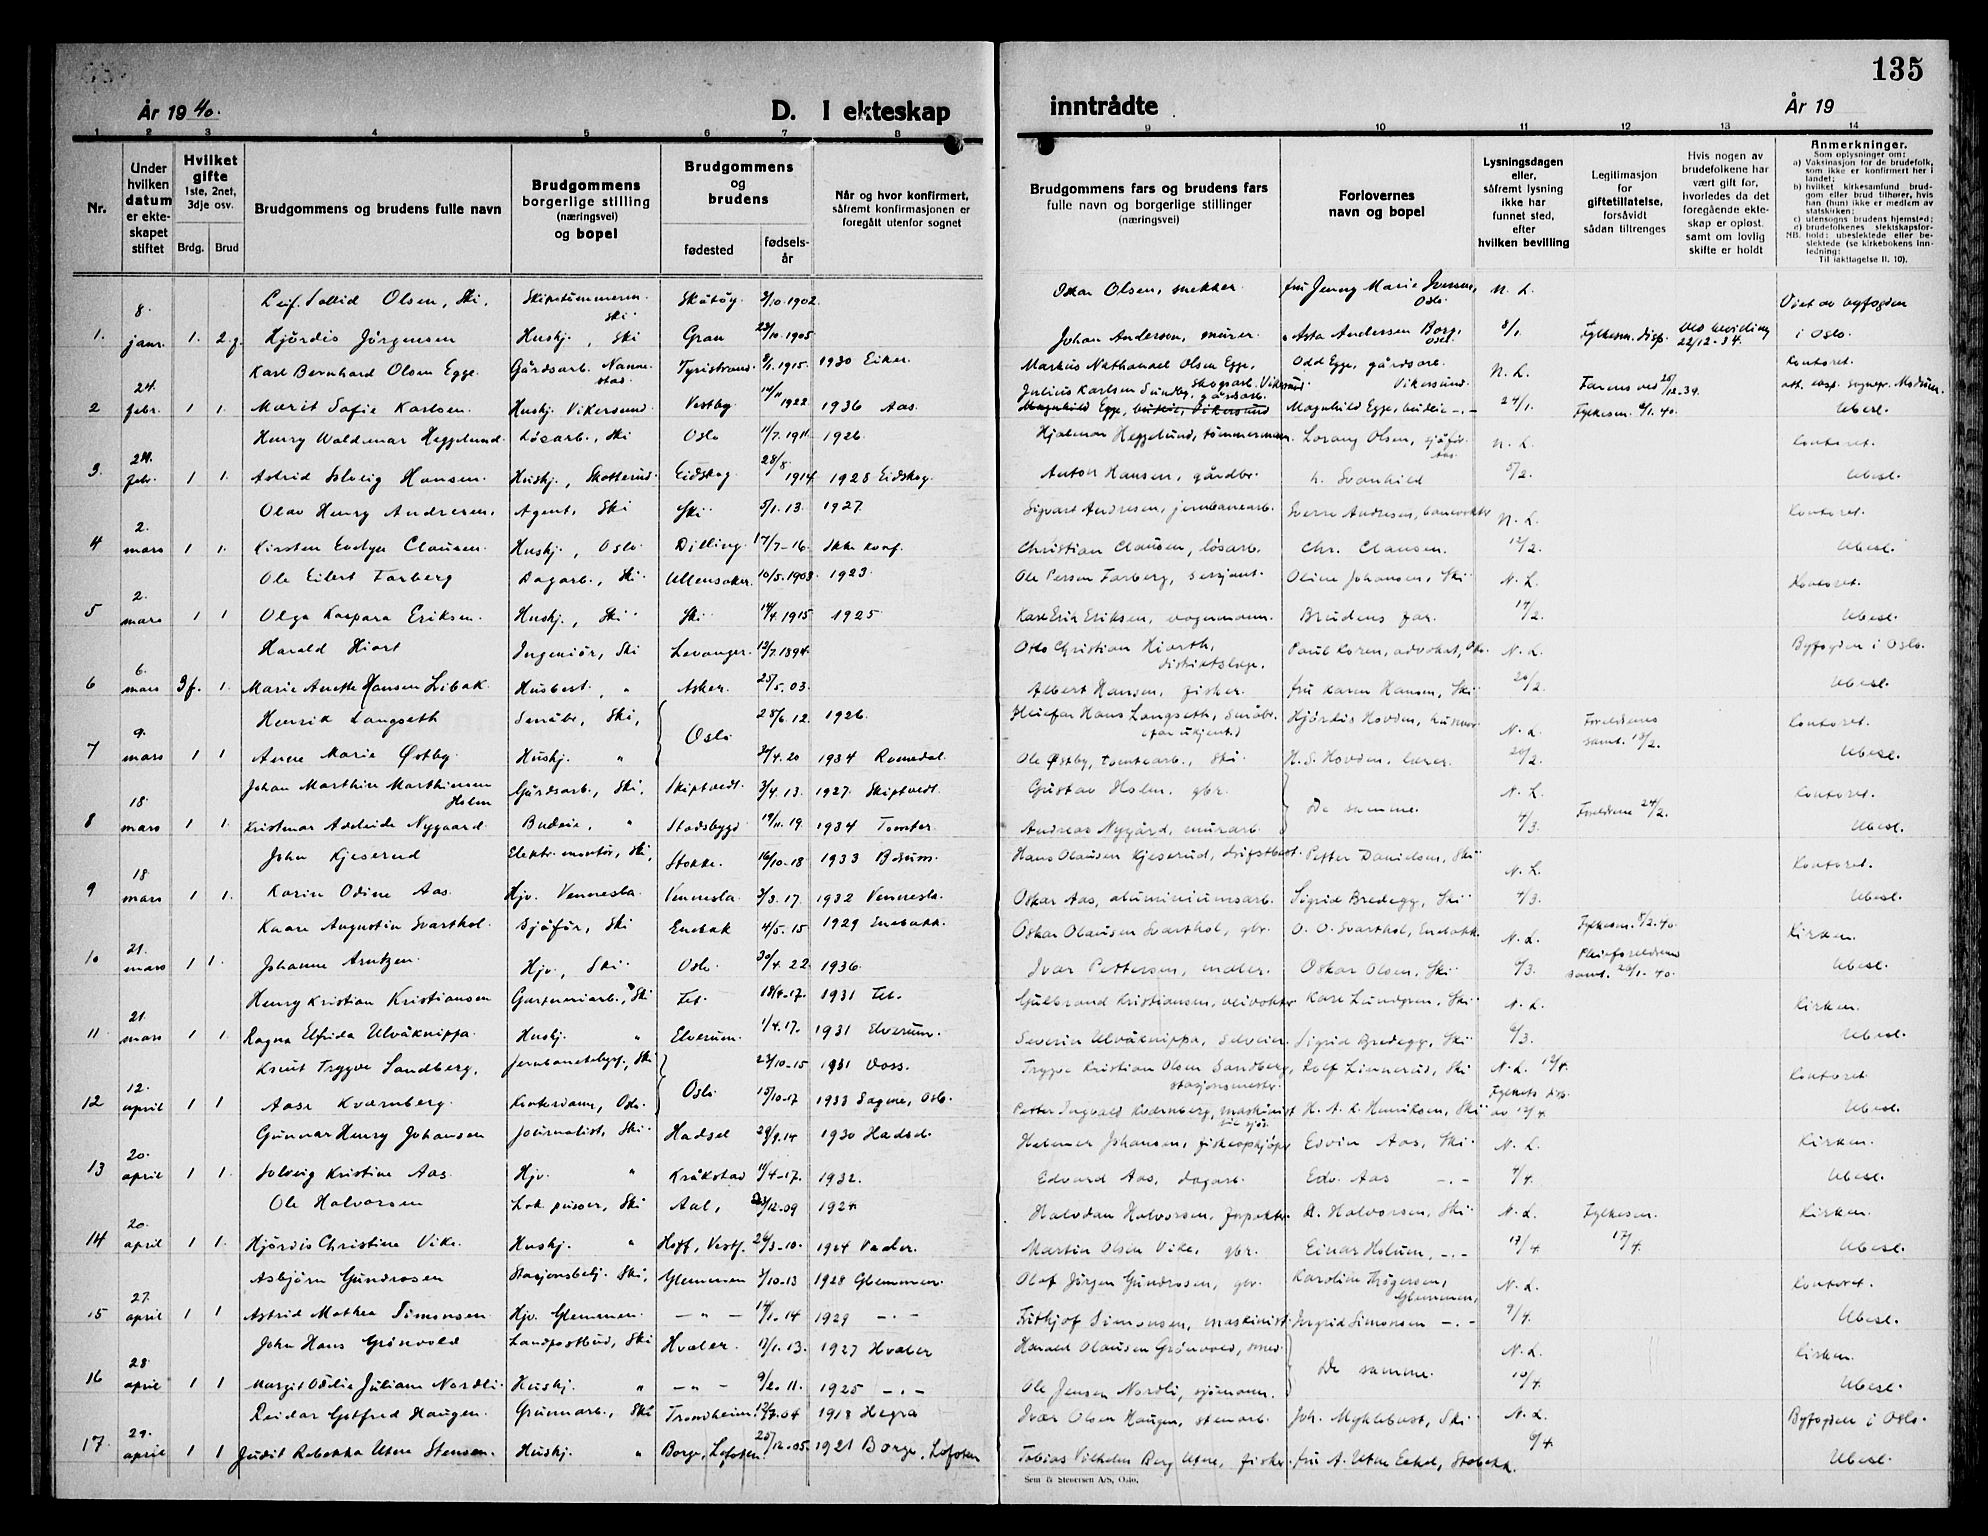 135
År 19 40.
D. I ekteskap inntrådte
År 19
1 2 3 4 5 6 7 8 9 10 11 12 13 14
Nr.
Under hvilken datum er ekteskapet stiftet
Hvilket gifte 1ste, 2net, 3dje osv.
Brdg. Brud
Brudgommens og brudens fulle navn
Brudgommens borgerlige stilling (næringsvei) og bopel
Brudgommens og brudens
fødested
fødselsår
Når og hvor konfirmert, såfremt konfirmasjonen er foregått utenfor sognet
Brudgommens fars og brudens fars fulle navn og borgerlige stillinger (næringsvei)
Forlovernes navn og bopel
Lysningsdagen eller, såfremt lysning ikke har funnet sted, efter hvilken bevilling
Legitimasjon for giftetillatelse, forsåvidt sådan tiltrenges
Hvis nogen av brudefolkene har vært gift før, hvorledes da det foregående ekteskap er opløst, samt om lovlig skifte er holdt
Anmerkninger.
Som oplysninger om:
a) Vaksinasjon for de brudefolk, som ikke er konfirmert her i landet;
b) hvilket kirkesamfund brudgom eller brud tilhører, hvis han (hun) ikke er medlem av statskirken;
c) utensogns brudens hjemsted;
d) brudefolkenes slektskapsforhold: ubeslektede eller beslektede (se kirkebokens innledning:
NB. Til iakttagelse II. 10).
Olsen, Ski, Skipstømmerm. Ski Skåtøy 1902 Oskar Olsen, snekker fru Jenny Marie Iversen, Oslo N. L. Viet av byfogden
1. 8. janr. 1. 2.g. Hjördis Jørgensen Huskj., Ski Gran 1905 Johan Andersen, murer Asta Andersen Borg, Oslo 8/1. Fylkesm. disp. 22/12-34. i Oslo.
Karl Bernhard Olsen Egge. Gårdsarb. Nannestad Tyristrand 1915. 1930 Eiker. Markus Nathanael Olsen Egge, Skogsarb. Vikersund Odd Egge, gårdsarb. Vikersund N. L. Kontoret.
2 24. febr. 1 1. Marit Sofie Karlsen. Huskj. Vikersund Vestby 14/11 1922 1936 Aas. Julius Karlsen Sundby, gårdsarb. Magnhild Egge, budeie -.- 24/1. Ubesl.
Henry Waldemar Heggelund. Løsarb., Ski Oslo 11/7. 1911 1926. Hjalmar Heggelund, tømmermann. Lorang Olsen, sjåfør. Aas N. L. Kontoret.
3. 24. febr. 1 1. Astrid Solveig Hansen. Huskj., Skotterud Eidskog 28/8 1914 1928 Eidskog Anton Hansen, gårdbr. Svanhild 5/2. Ubesl.
Olav Henry Andresen. Agent, Ski Ski 5/1. 13. 1927 Sigvart Andresen, jernbanearb. Sverre Andresen, banevokter N. L. Kontoret.
4 2. mars 1 1. Kirsten Evelyn Clausen. Huskj., Oslo. Dilling 17/7-16. Ikke konf. Christian Clausen, løsarb. Chr. Clausen. 12/2. Ubesl.
Ole Eilert Farberg Dagarb., Ski. Ullensaker 10/5. 1903 1923 Ole Persen Farberg, sersjant. Oline Johansen, Ski N. L. Kontoret.
5 2. mars 1 1. Olga Kaspara Eriksen. Huskj., Ski Ski 14/4. 1915 1925 Karl Erik Eriksen, vognmann. Brudens far. 17/2. Ubesl.
Harald Hiort Ingeniør, Ski Levanger 12/7. 1894. Otto Christian Hiorth, distriktslege. Paul Koren, advokat, Oslo. N. L. Byfogden i Oslo.
6 6. mars 3 f. 1. Marie Anette Hansen Libak. Husbest., " Asker. 25/5. 03. Albert Hansen, fisker. fru Karen Hansen, Ski 20/2. Ubesl.
Henrik Langseth Småbr., Ski, Oslo 28/6. 12. 1926. Steffar Hans Langseth, småbr. (far ukjent.) Hjördis Hovden, husmor N. L. Foreldrenes samt. 13/2. Kontoret.
7 9. mars 1 1. Anne Marie Østby Huskj. " 27/4. 20 1934 Romedal. Ole Østby, tomtearb., Ski. H. S. Hovden, lærer. 20/2. Ubesl.
Johan Marthin Marthinsen Holm Gårdsarb., Ski, Skiptvedt 3/4. 13. 1927. Skiptvedt. Gustav Holm, gbr. De samme. N. L. Kontoret.
8 18. mars 1 1. Kristmar Adelaide Nygaard Budeie, " Stadsbygd 19/11. 19. 1934 Tomter. Andreas Nygård, murarb. 4/3. Foreldrene 24/2. Ubesl.
John Kjeserud Elektr. montør, Ski, Stokke. 16/10-18 1933 Bærum. Hans Olausen Kjeserud, driftsbest. Petter Danielsen, Ski N. L. Kontoret.
9 18 mars 1 1. Karin Odine Aas. Hjv. Vennesla Vennesla. 3/3. 17. 1932 Vennesla. Oskar Aas, aluminiumsarb. Sigrid Bredegg, Ski 4/3. Ubesl.
Kaare Augustin Svarthol. Sjåfør, Ski Enebak 4/5. 15 1929 Enebakk. Oskar Olausen Svarthol, gbr. O. O. Svarthol, Enebakk N. L. Fylkesm. 8/2. 40. Kirken.
10 21. mars 1 1. Johanne Arntzen Hjv., Ski Oslo 30/4. 22. 1936. Ivar Pettersen, maler. Oskar Olsen, Ski 6/3. Pleieforeldrene samt. 20/1. 40. Ubesl.
Henry Kristian Kristiansen Gartneriarb., Ski Fet. 18/4-17. 1931 Fet. Gulbrand Kristiansen, veivokter Kåre Lundgren, Ski N. L. Kirken.
11 21. mars 1 1. Ragna Elfrida Ulvåknippa. Huskj. " Elverum. 1/4. 17. 1931 Elverum. Severin Ulvåknippa, selveier. Sigrid Bredegg, Ski 6/3. Ubesl.
Knut Trygve Sandberg, Jernbanetelegr., Ski Oslo 23/10-15 1931 Voss. Trygve Kristian Olsen Sandberg, stasjonsmester. Rolf Linnerud, Ski N. L. 12/4. Kontoret.
12 12. april 1 1 Aase Kværnberg. Kontordame, Oslo. 15/10-17 1933 Sagene, Oslo. Petter Ingvald Kværnberg, maskinist H. A. R. Henriksen, Ski av 12/4. Ubesl.
Gunnar Henry Johansen Journalist, Ski. Hadsel 29/9. 14 1930 Hadsel. Helmer Johansen, fiskeopkjøper Edvin Aas, Ski. N. L. Kirken.
13 20. april 1 1. Solveig Kristine Aas. Hjv. " Kråkstad 11/4-17. 1932. Edvard Aas, dagarb. Edv. Aas -.- 4/4. Ubesl.
Ole Halvorsen Lok. pusser, Ski Aal, 23/12-09 1924 Halvdan Halvorsen, forpakter H. Halvorsen, Ski. N. L. Fylkesm. 17/4. Kirken.
14 20. april 1 1. Hjördis Christine Vike. Huskj. " Hoff, Vestf. 26/3-10. 1924 Vaaler. Martin Olsen Vike, gbr. Einar Holum, -.- 17/4. Ubesl.
Asbjørn Gundrosen Stasjonsbetj. Ski, Glemmen 3/10-13 1928 Glemmen. Olaf Jörgen Gundrosen, gbr. Karoline Thøgersen, Glemmen, N. L. Kontoret.
15 27. april 1 1 Astrid Mathea Simonsen Hjv. Glemmen. - " - 14/1. 14 1929 -.- Fithjof Simonsen, maskinist. Ingrid Simonsen -.- 9/4. Ubesl.
John Hans Grönvold Landpostbud, Ski Hvaler. 13/1. 13. 1927 Hvaler Harald Olausen Grønvold, smed. De samme. N. L. Kirken.
16 28. april 1 1 Margit Odelie Juliane Nordli. Huskj. " - " - 9/2. 11. 1925 -.- Ole Jensen Nordli, sjömann. 10/4. Ubesl.
Reidar Gotfred Haugen. Grunnarb., Ski Trondheim 04 1918 Hegra Ivar Olsen Haugen, stenarb. Joh. Myklebust, Ski N. L. Byfogden i Oslo.
17. 29. april 1 1 Judit Rebekka Utne Stensen. Huskj. " Borge, Lofoten. 25/12-05. 1921 Borge, Lofoten Tobias Vilhelm Berg Utne, fisker. fru A. Utne Eckel, Stabekk. 6/4. Ubesl.
Sem & Stenersen A/S, Oslo.